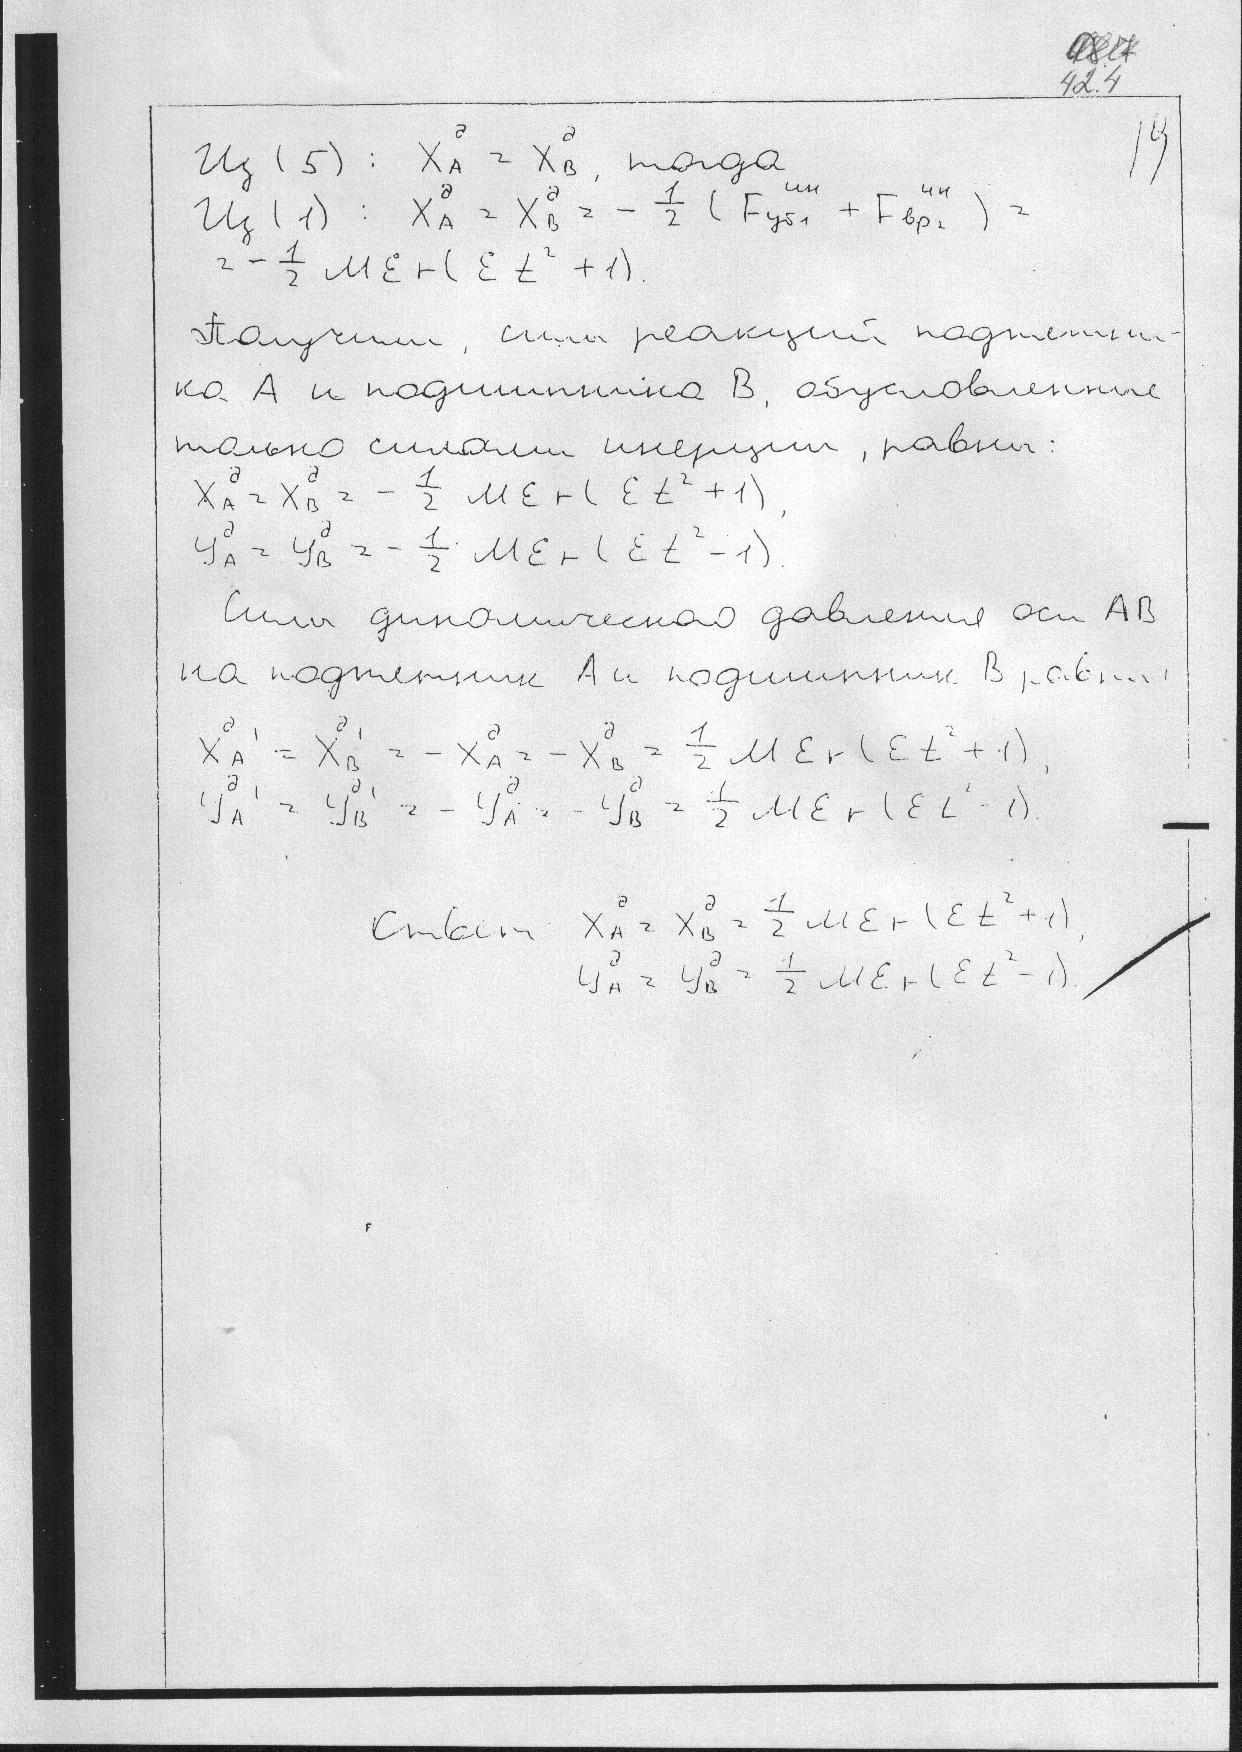 42.4
19
Из (5): X_A^д = X_B^д, тогда
Из (1): X_A^д = X_B^д = -1/2 (F_цб1^ин + F_вр2^ин) =
= -1/2 MƐr(Ɛt² + 1).
Получим, силы реакций подпятни-
ка A и подшипника B, обусловленные
только силами инерции, равны:
X_A^д = X_B^д = -1/2 MƐr(Ɛt² + 1),
Y_A^д = Y_B^д = -1/2 MƐr(Ɛt² - 1).
Силы динамического давления оси AB
на подпятник A и подшипник B равны:
X_A^д' = X_B^д' = -X_A^д = -X_B^д = 1/2 MƐr(Ɛt² + 1),
Y_A^д' = Y_B^д' = -Y_A^д = -Y_B^д = 1/2 MƐr(Ɛt² - 1).
Ответ X_A^д = X_B^д = 1/2 MƐr(Ɛt² + 1),
Y_A^д = Y_B^д = 1/2 MƐr(Ɛt² - 1).